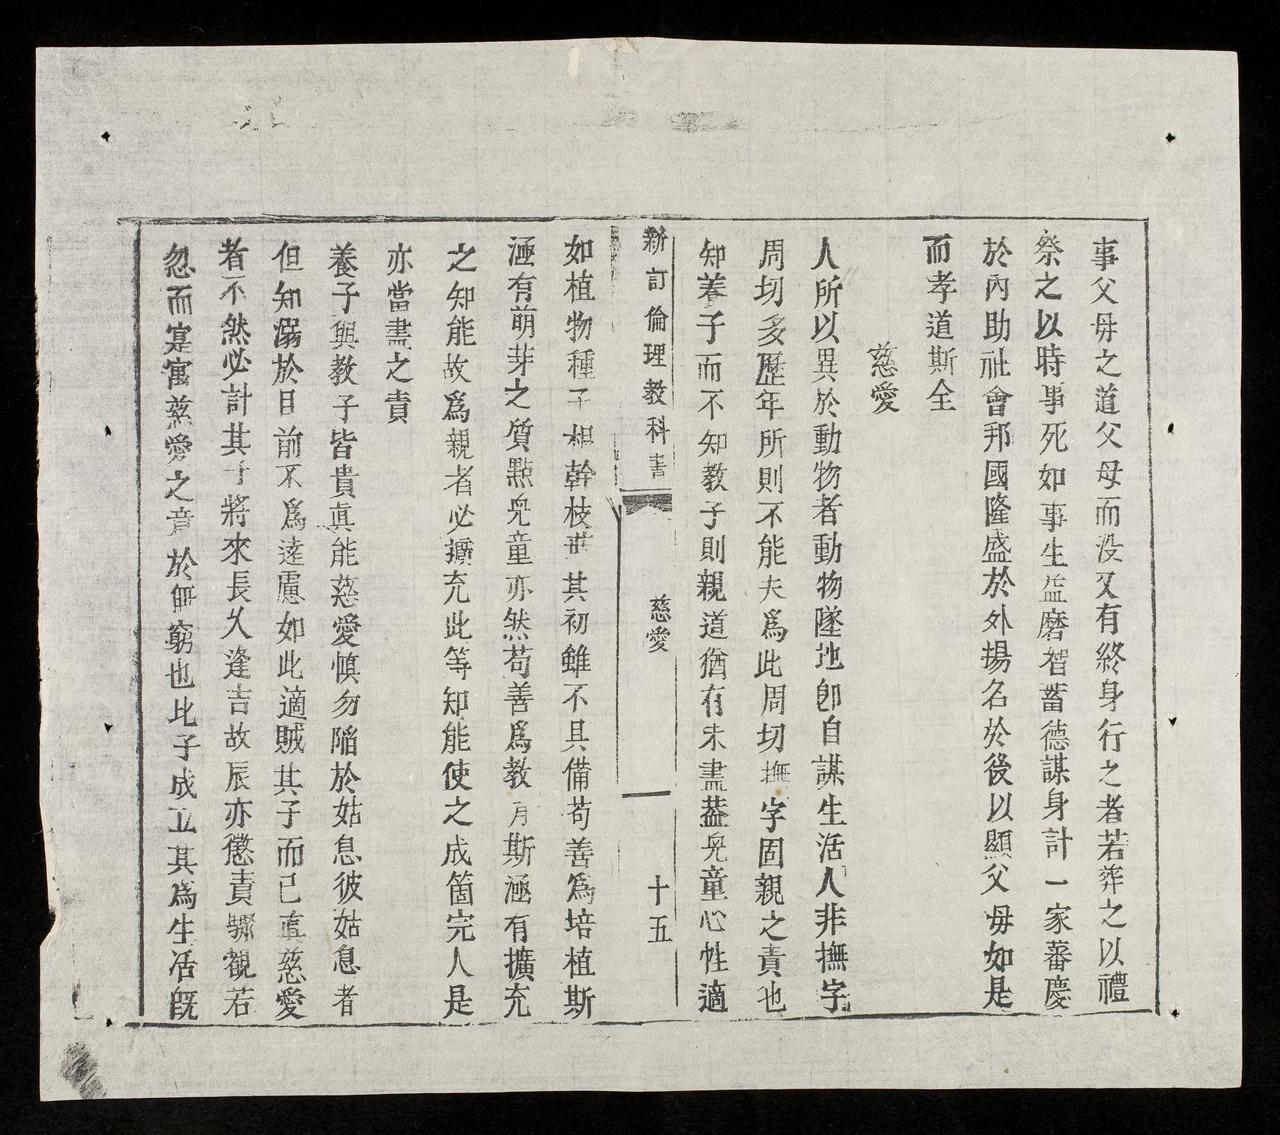 事父毋之道父母而没又有終身行之者若葬之以禮
祭之以時事死如事生益磨智蓄德謀身計一家蕃慶
於內助社會邦國隆盛於外揚名於後以顯父毋如是
而孝道斯全
慈愛
人所以異於動物者動物墜地卽自謀生活人非撫字
周切多歷年所則不能夫爲此周切撫字固親之責也
知養子而不知教子則親道猶有未盡蓋兒童心性適
新訂倫理教科書
慈愛
十五
如植物種子根幹枝葉其初雖不具備苟善爲培植斯
涵有萌芽之質點兒童亦然苟善爲教育斯涵有擴充
之知能故爲親者必擴充此等知能使之成箇完人是
亦當盡之責
養子與教子皆貴真能慈愛慎勿陥於姑息彼姑息者
但知溺於目前不爲逺慮如此適賊其子而已真慈愛
者不然必計其子將來長久逢吉故辰亦懲責驟觀若
忽而寔寓慈愛之意於無窮也比子成立其爲生活旣